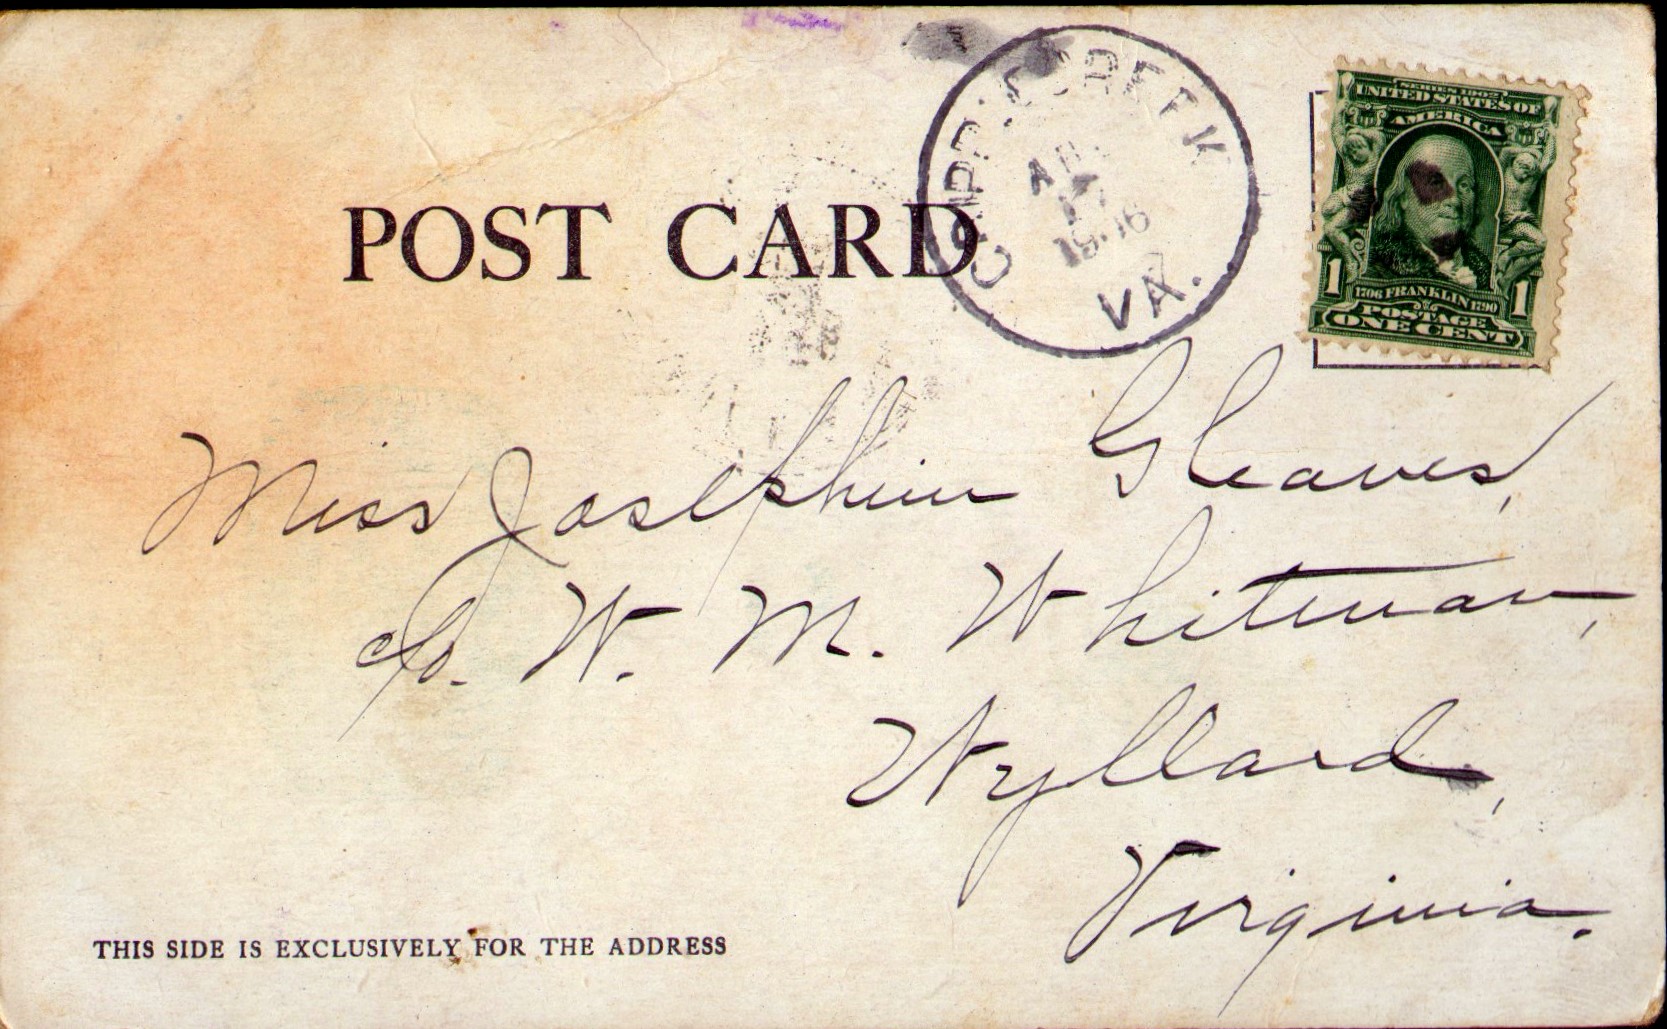 SERIES 1902
UNITED STATES OF
AMERICA
1706 FRANKLIN 1790
1 1
POSTAGE
ONE CENT
CRIPPLE CREEK
17
1906
VA.
POST CARD
Miss Josephine Gleaves,
c/o. W. M. Whitman,
Wyllard,
Virginia.
THIS SIDE IS EXCLUSIVELY FOR THE ADDRESS